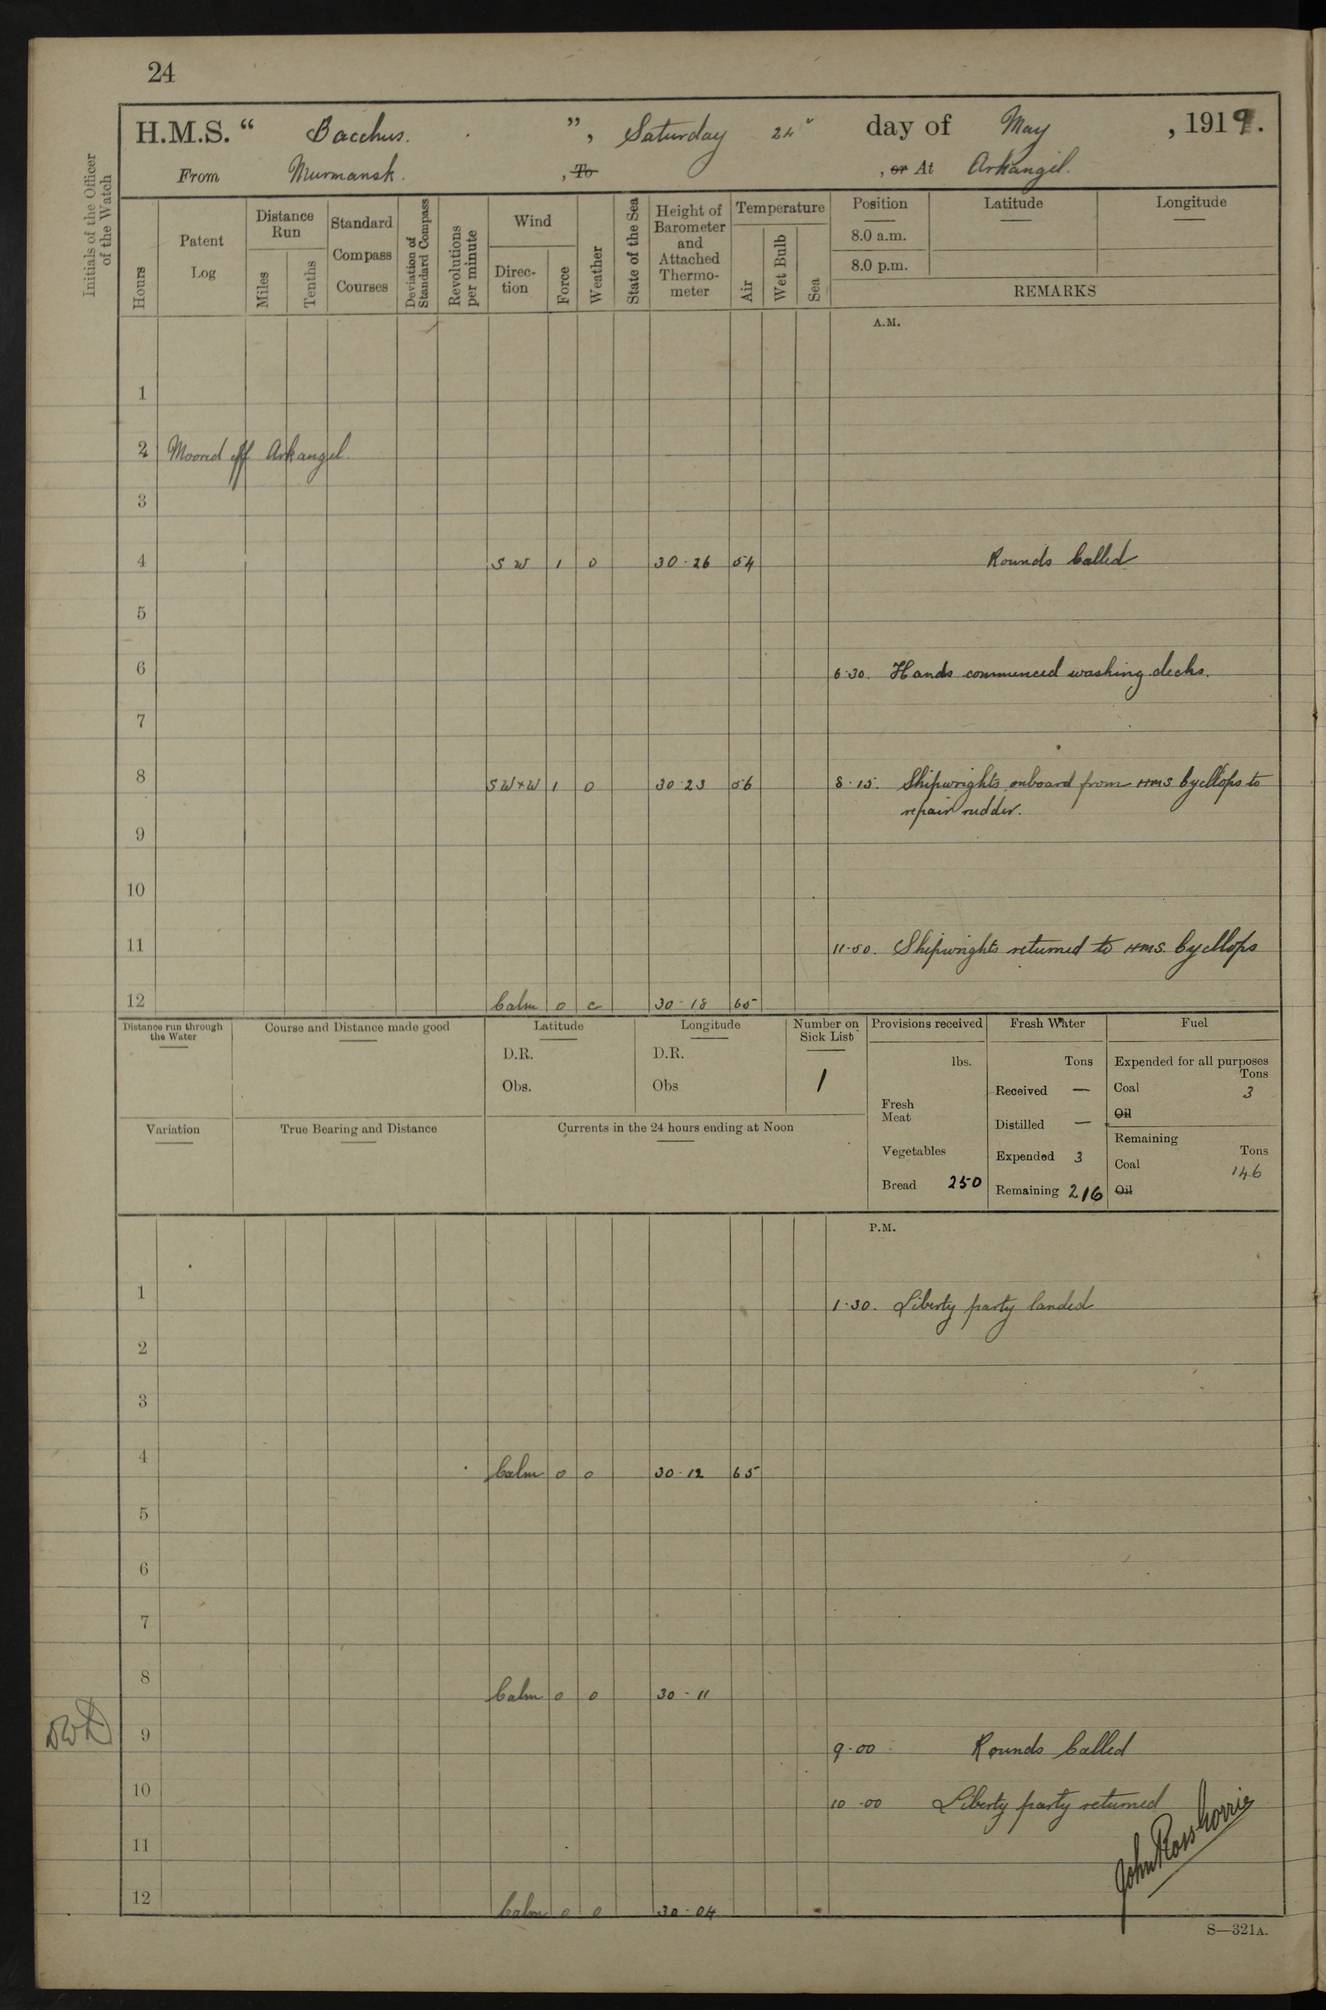 24
H.M.S. “ Bacchus. ”, Saturday 24" day of May , 1919.
From Murmansk. , To , or At Arkangel.
Initials of the Officer of the Watch
Hours
Patent Log
Distance Run
Miles
Tenths
Standard Compass Courses
Deviation of Standard Compass
Revolutions per minute
Wind
Direc-tion
Force
Weather
State of the Sea
Height of Barometer and Attached Thermo-meter
Temperature
Air
Wet Bulb
Sea
Position
8.0 a.m.
8.0 p.m.
Latitude
Longitude
REMARKS
A.M.
1
2 Moored off Arkangel.
3
4 S W 1 o 30·26 54 Rounds Called
5
6 6·30. Hands commenced washing decks.
7
8 SW×W 1 o 30·23 56 8·15. Shipwrights onboard from HMS Cycllops to
repair rudder.
9
10
11 11·50. Shipwrights returned to HMS. Cycllops
12 Calm o c 30·18 65
Distance run through the Water
Course and Distance made good
Latitude
D.R.
Obs.
Longitude
D.R.
Obs
Number on Sick List
1
Provisions received
lbs.
Fresh Meat
Vegetables
Bread 250
Fresh Water
Tons
Received —
Distilled —
Expended 3
Remaining 216
Fuel
Expended for all purposes
Tons
Coal 3
Oil
Remaining
Tons
Coal 146
Oil
Variation
True Bearing and Distance
Currents in the 24 hours ending at Noon
P.M.
1 1·30. Liberty party landed
2
3
4 Calm o o 30·12 65
5
6
7
8 Calm o o 30·11
9 9·00 Rounds Called
10 10·00 Liberty party returned
11
12 Calm o o 30·04
John Ross Gorrie
S—321A.